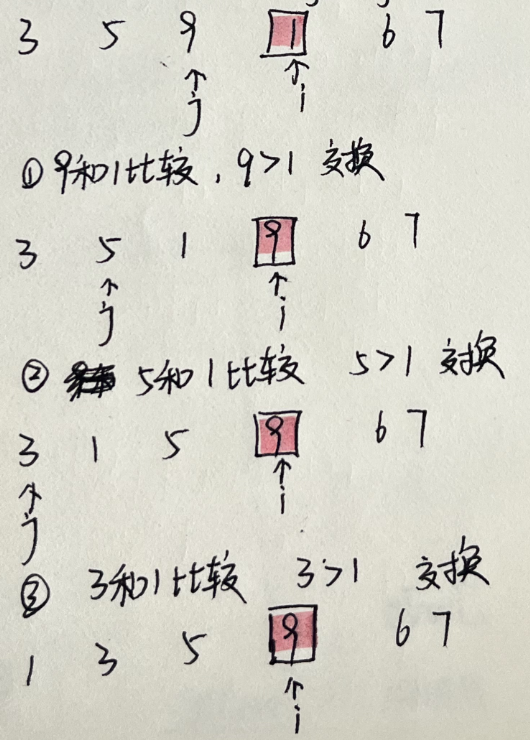 3 5 9 1 6 7
↑ ↑
j i
①9和1比较,9>1 交换
3 5 1 9 6 7
↑ ↑
j i
② 5和1比较 5>1 交换
3 1 5 9 6 7
↑ ↑
j i
③ 3和1比较 3>1 交换
1 3 5 9 6 7
↑
i